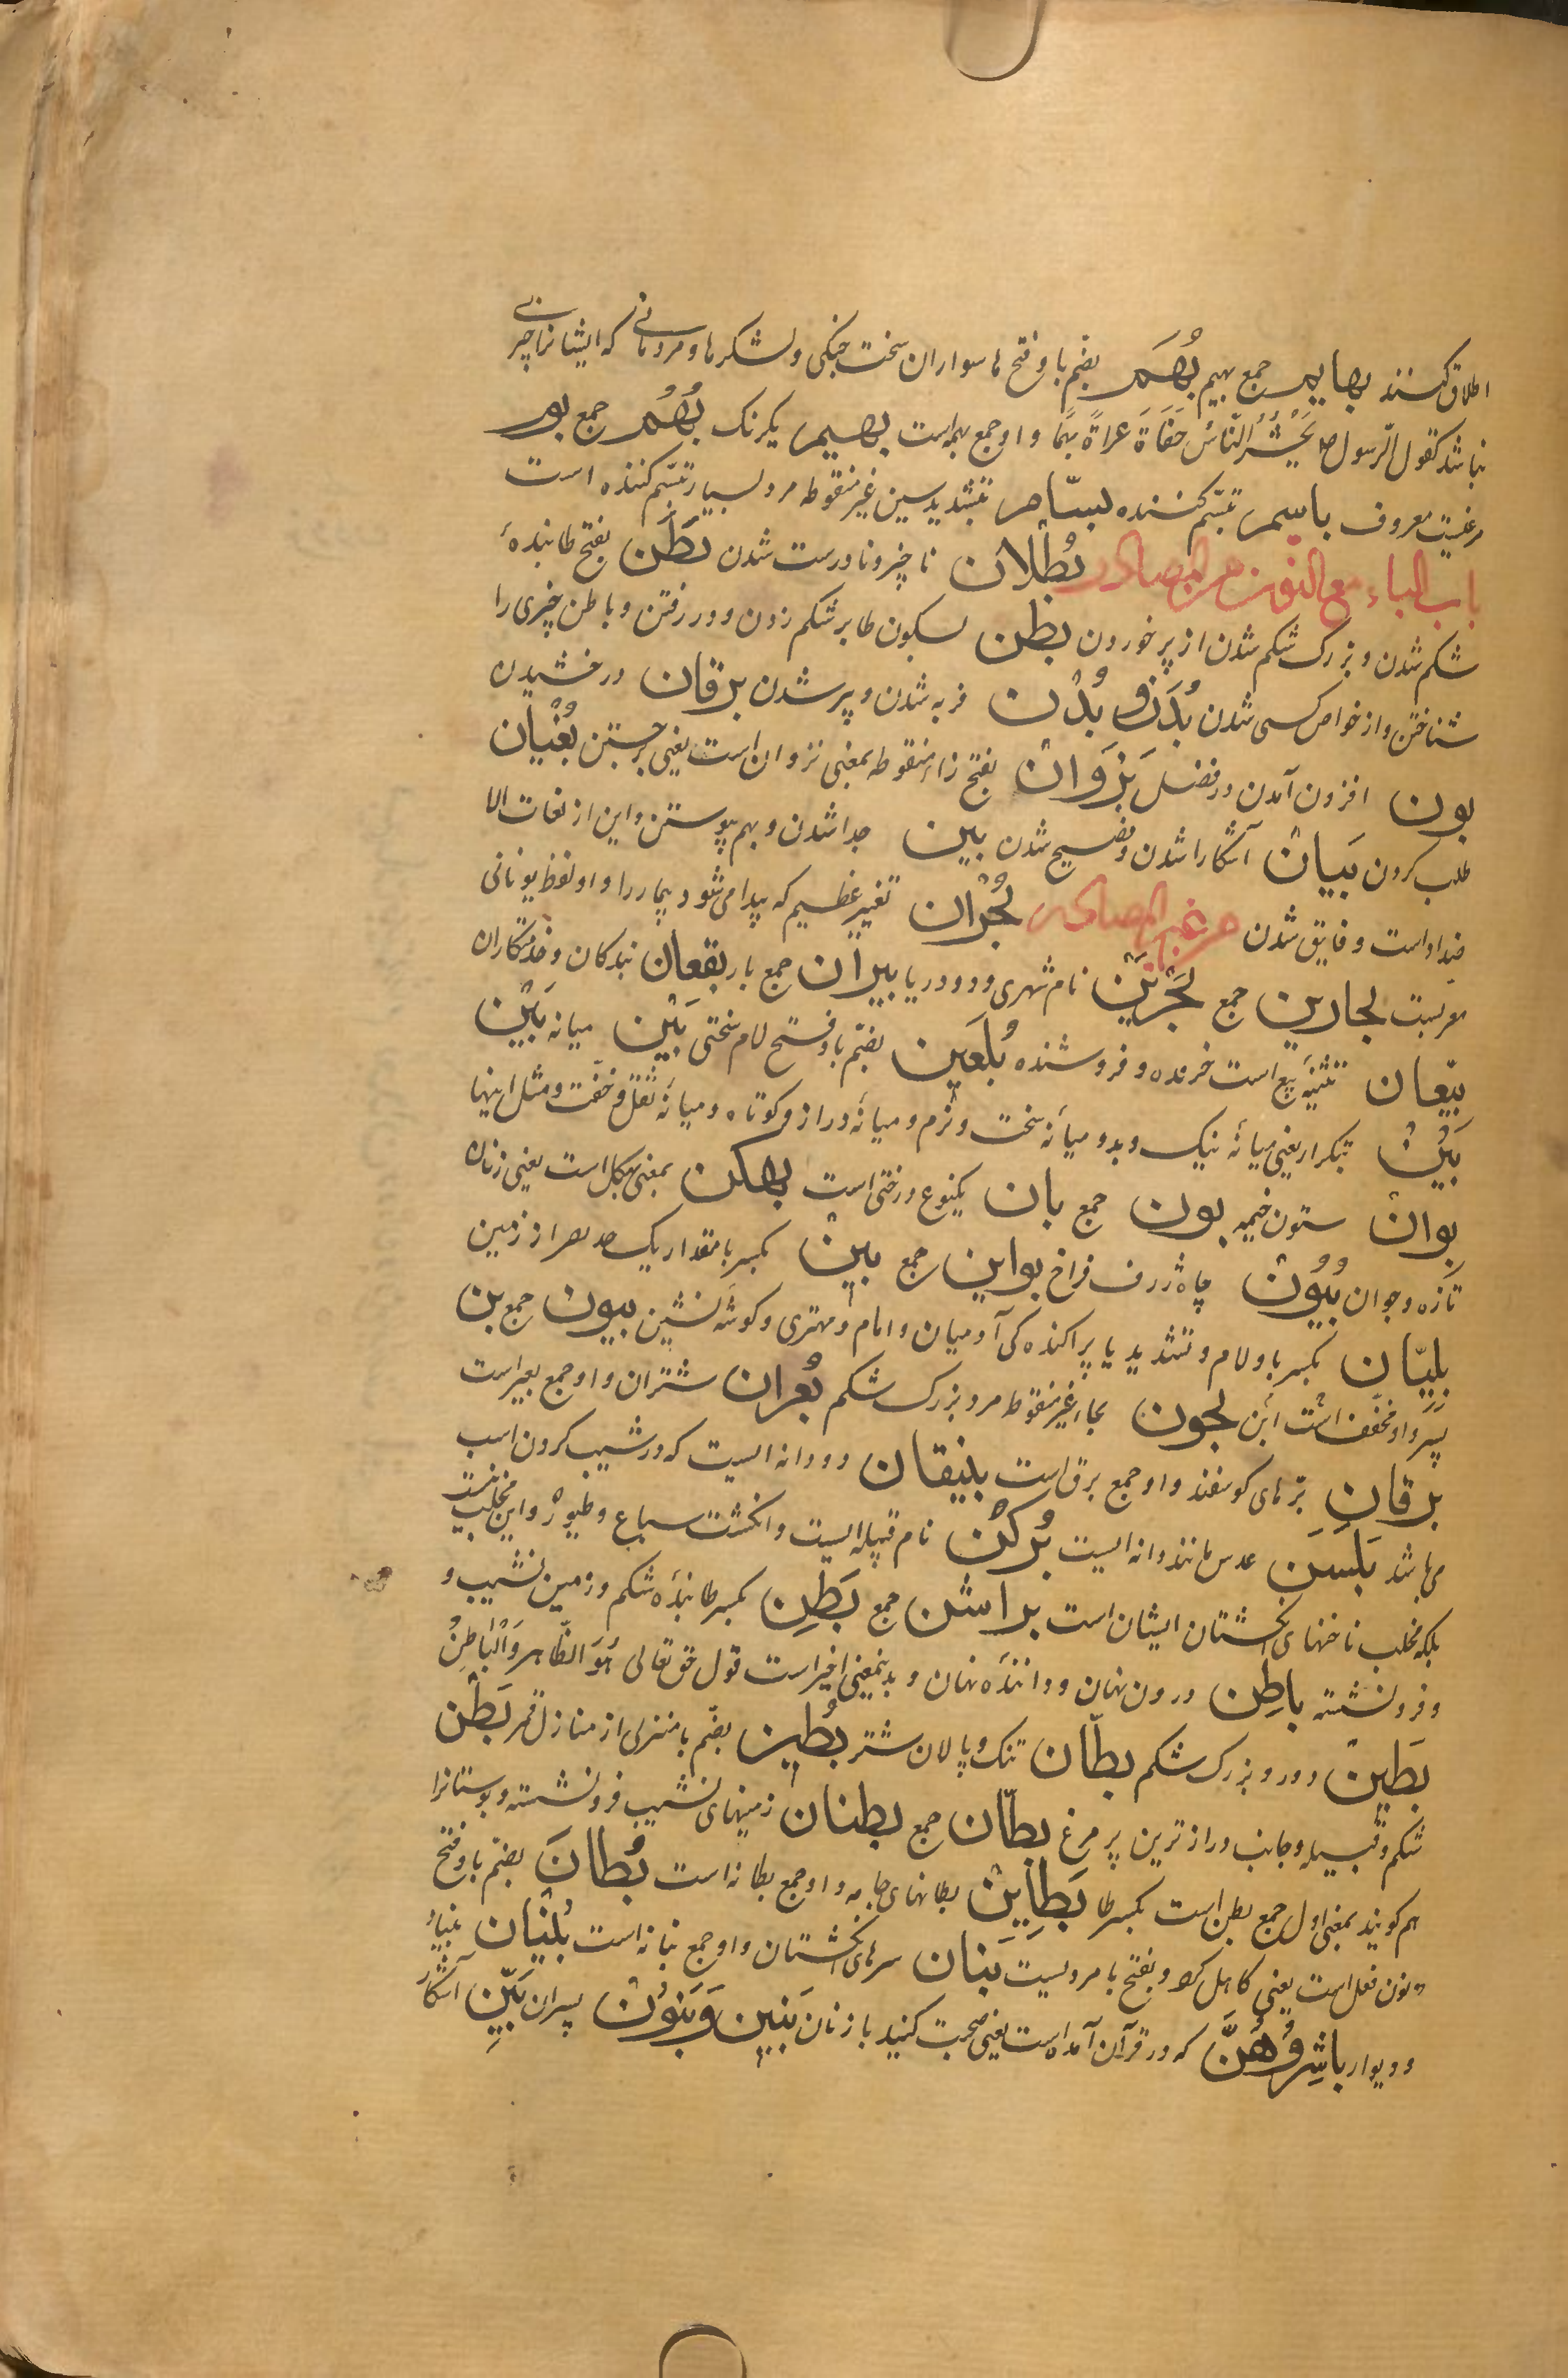 اطلاق کنند بهایم جمع بهیم بُهَم بضّم با و فتح ها سواران سخت جنکی و لشکرها و مردمانی که ایشانرا چیزی
نباشد کقول الرّسول یُحْشَرُ النّاسُ حُفَاةً عراةً بُهمًا و او جمع بهمه است بهیم یکرنک بُهُم جمع بوم
مرغیست معروف باسم تبسّم کننده بسّام بتشدید سین غیر منقوطه مرد بسیار تبسّم کننده است
باب الباء مع النون من المصادر بُطْلان ناچیز و نادرست شدن بَطَن بفتح طا بندهٔ
شکم شدن و بزرک شکم شدن از پر خوردن بطن بسکون طا بر شکم زدن و در رفتن و باطن چیزی را
شناختن و از خواص کسی شدن بُدَن و بُدْن فربه شدن و پر شدن برقان درخشیدن
بون افزون آمدن در فضل بَزَوان بفتح زاء منقوطه بمعنی نزوان است یعنی برجستن بُغْیان
طلب کردن بَیان آشکارا شدن و فصیح شدن بین جدا شدن و بهم پیوستن و این از لغات الا
ضداد است و فایق شدن من غیر المصادر بُحْران تغییر عظیم که پیدا می شود بیمار را و او لفظ یونانی
معربست بحارین جمع بَحْرَیْن نام شهری و دو دریا بیران جمع بار بقعان بندکان و خدمتکاران
بیّعان تثنیهٔ بیع است خرنده و فروشنده بُلَعین بضّم با و فتح لام سختی بَیْن میانه بَیْن
بَیْن بتکرار یعنی میانهٔ نیک و بد و میانهٔ سخت و نرم و میانهٔ دراز و کوتاه و میانهٔ ثقل و خفّت و مثل اینها
بوان ستون خیمه بون جمع بان یکنوع درختی است بهکن بمعنی بهکل است یعنی زنان
تازه و جوان بُیُون چاه ژرف فراخ بواین جمع بین بکسر با مقدار یک مد بصر از زمین
بِلِیّان بکسر با و لام و تشدید یا پراکنده کی آدمیان و امام و مهتری و کوشه نشین بیون جمع بن
پسر و او مخفّف است ابن بجون بجاء غیر منقوطه مرد بزرک شکم بُعران شتران و او جمع بعیر است
برقان برّهای کوسفند و او جمع برق است بنیقان دو دانه ایست که در شیب کردن اسب
می باشد بَلَسَن عدس مانند دانه ایست بُرکُن نام قبیله ایست و انکشت سباع و طیور و این مخلب نیست
بلکه مخلب ناخنهای انکشتان ایشان است براشن جمع بَطِن بکسر طا بندهٔ شکم و زمین نشیب و
و فرو نشسته باطِن درون نهان و دانندهٔ نهان و بدینمعنی اخیر است قول حق تعالی هُوَ الظّاهر وَالْبَاطِنُ
بَطین دور و بزرک شکم بطان تنک و پالان شتر بُطین بضّم با منزلی از منازل قمر بَطن
شکم و قبیله و جانب درازترین پر مرغ بطّان جمع بطنان زمینهای نشیب فرو نشسته و بوستانرا
هم کویند بمعنی اول جمع بطن است بکسر طا بَطاین بطانهای جامه و او جمع بطانه است بُطانَ بضّم با و فتح
نون فعل است یعنی کاهل کرد و بفتح با مردیست بَنان سرهای انکشتان و او جمع بنانه است بُنْیان بنیاد
و دیوار باشِرُوهُنَّ که در قرآن آمده است یعنی صحبت کنید با زنان بَنین وَ بَنُون پسران بَیِّن آشکار